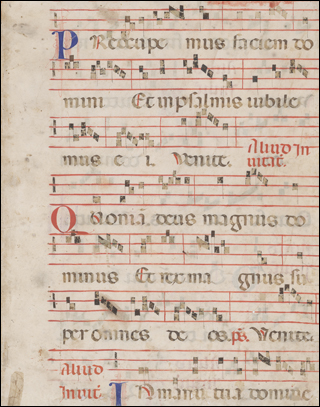 PReocupe mus faciem do
mini Et in psalmis iubile
mus e i. Venite. Aliud In
uitat.
QUoniā deus magnus do
minus Et rex ma gnus su
per omnes de os. ps. Venite.
Aliud
Inuit. IN manu tua domine